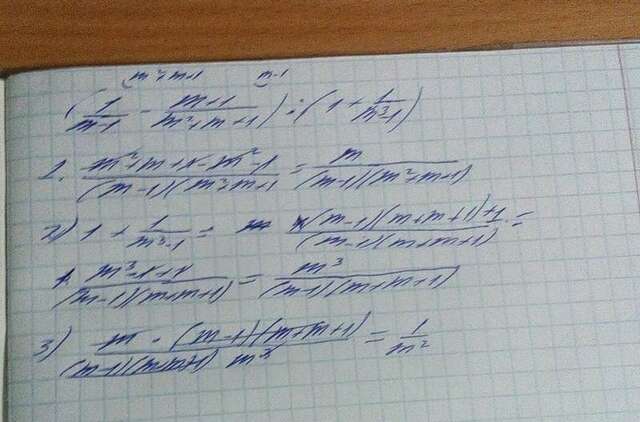 m²+m+1 m-1
(1/(m-1) - (m+1)/(m²+m+1)) : (1 + 1/(m³-1))
1. (m²+m+1-m²-1)/((m-1)(m²+m+1) = m/((m-1)(m²+m+1))
2) 1 + 1/(m³-1) = ((m-1)(m+m+1)+1)/((m-1)(m+m+1)) =
(m³-1+1)/((m-1)(m+m+1)) = m³/((m-1)(m+m+1))
3) (m · (m-1)(m+m+1))/((m-1)(m+m+1) m³) = 1/m²